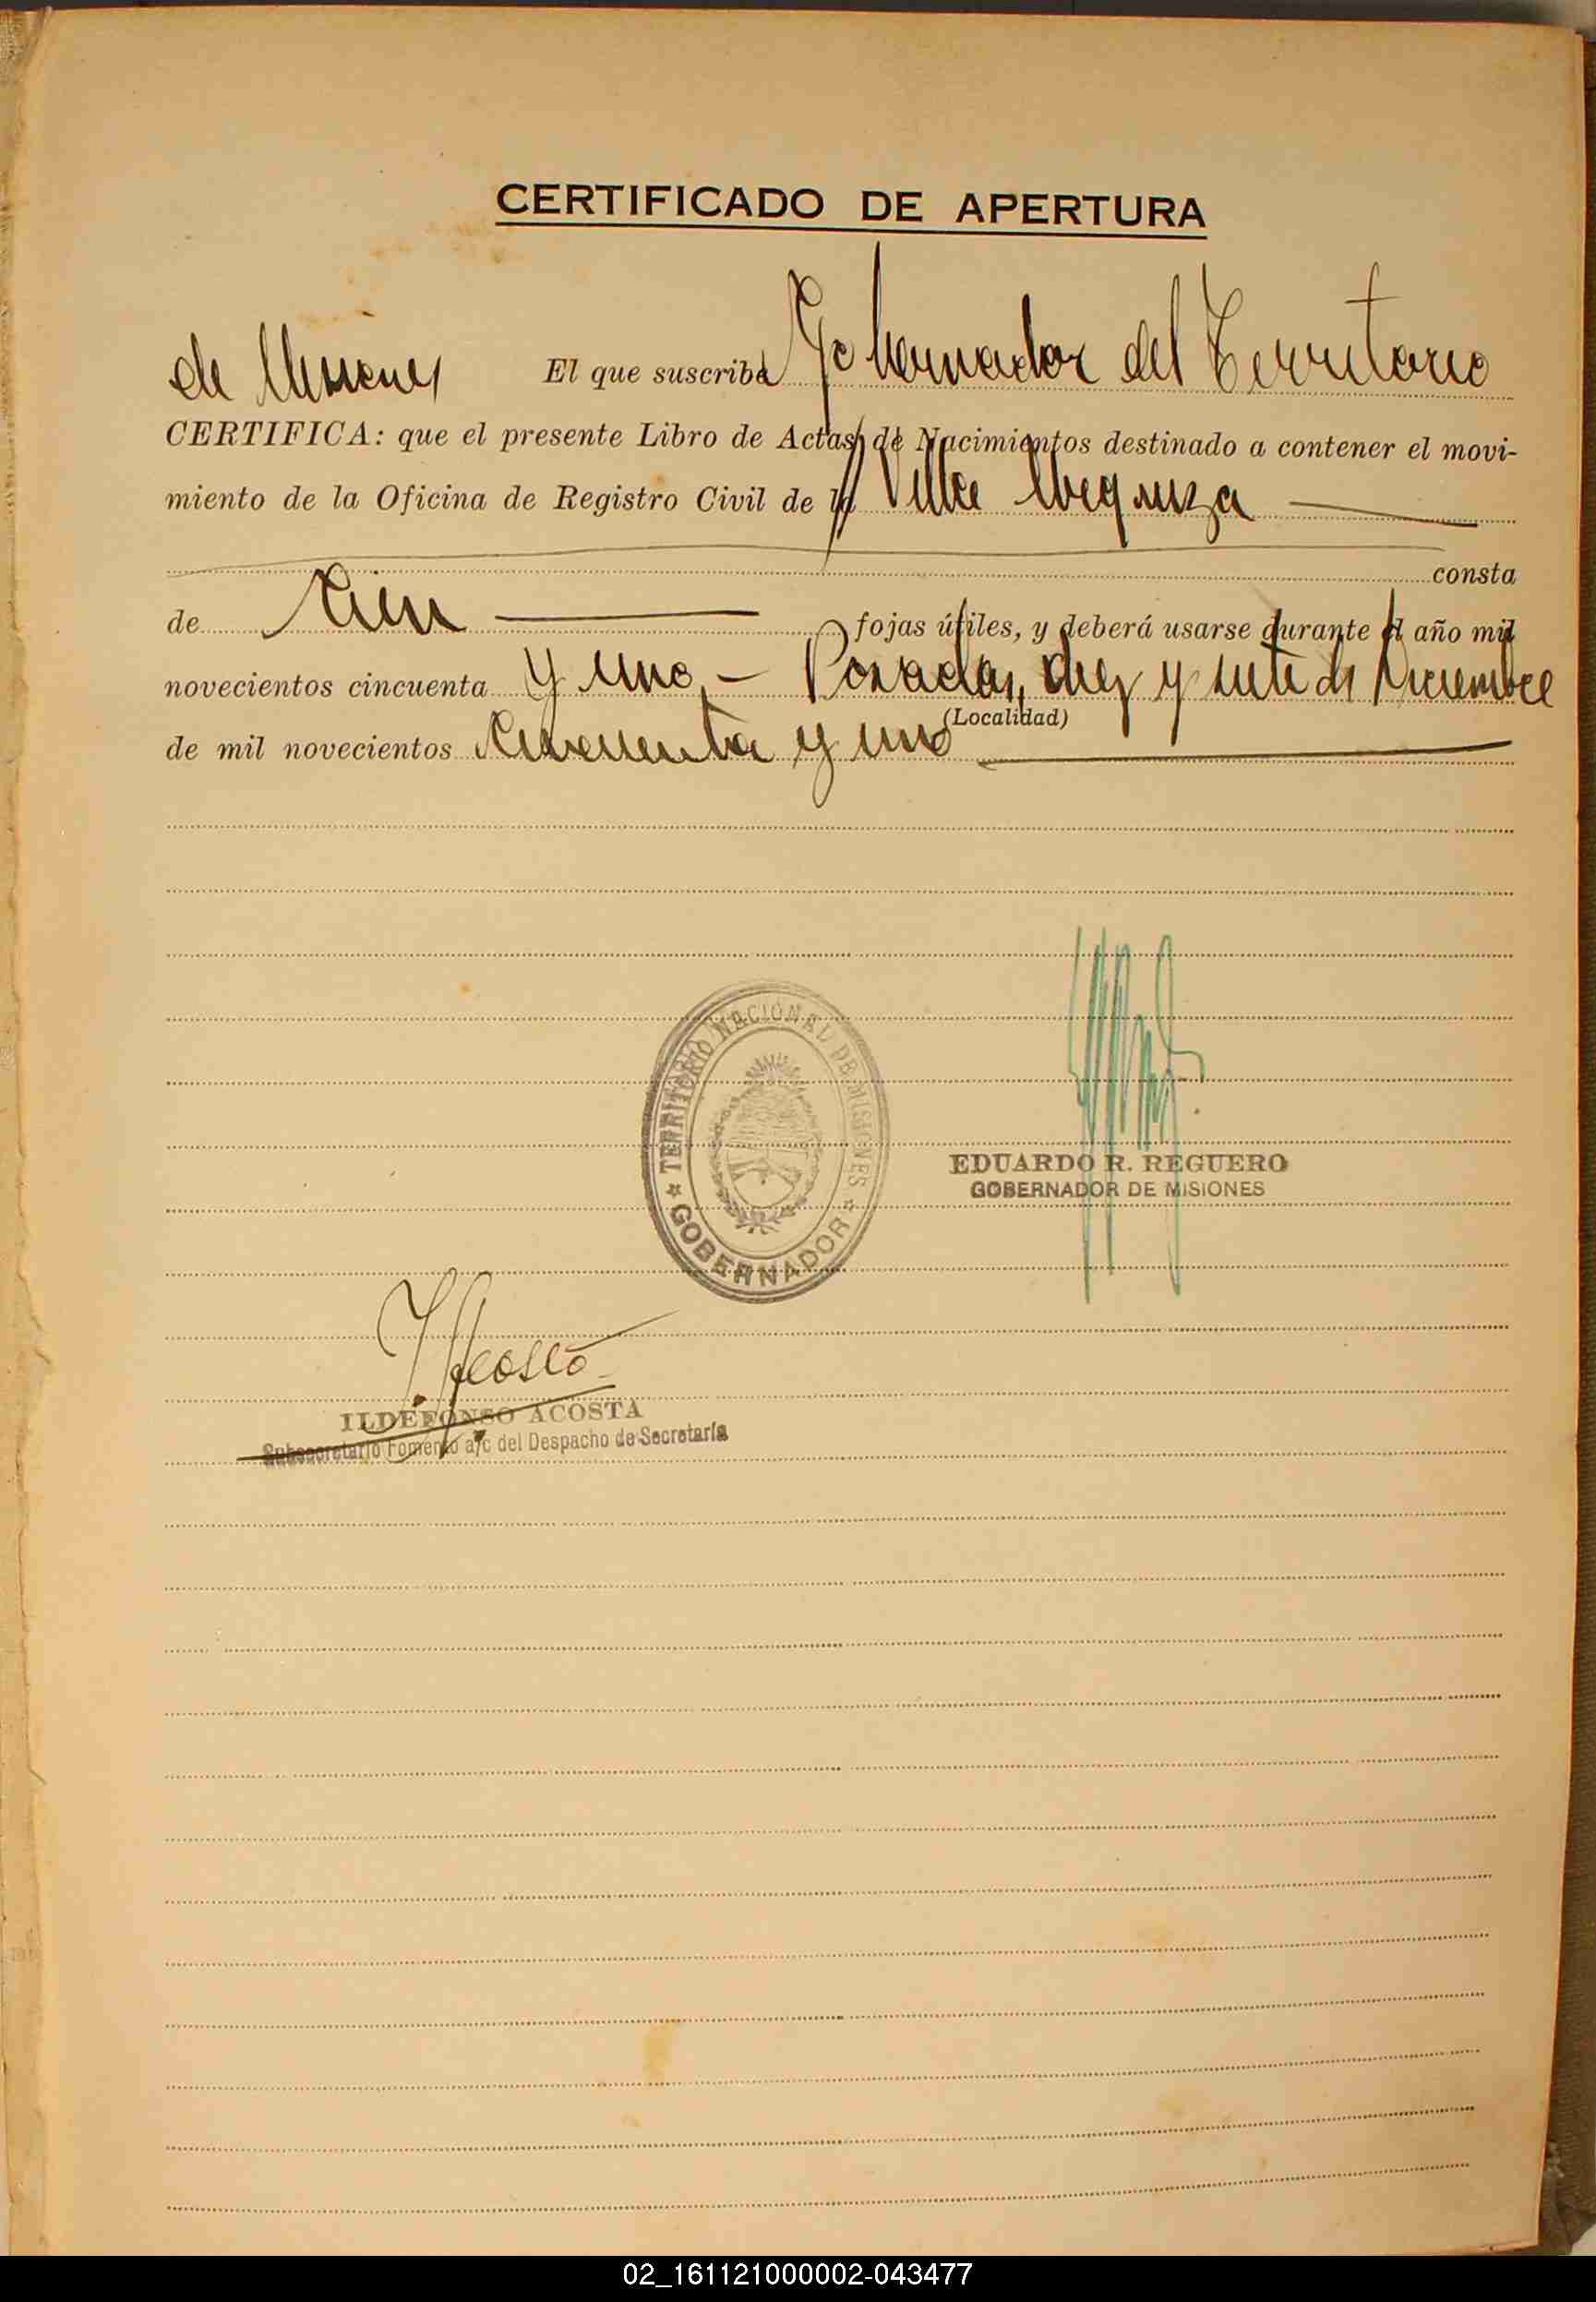 CERTIFICADO DE APERTURA
El que suscribe Gobernador del Territorio
de Misiones
CERTIFICA: que el presente Libro de Actas de Nacimientos destinado a contener el movi-
miento de la Oficina de Registro Civil de la Villa
consta
de Cien fojas útiles, y deberá usarse durante el año mil
novecientos cincuenta y uno.- Posadas, diez y siete de Diciembre
(Localidad)
de mil novecientos cincuenta y uno
TERRITORIO NACIONAL DE MISIONES
GOBERNADOR
EDUARDO R. REGUERO
GOBERNADOR DE MISIONES
I. Acosta
ILDEFONSO ACOSTA
Subsecretario Fomento a/c del Despacho de Secretaría
02_161121000002-043477